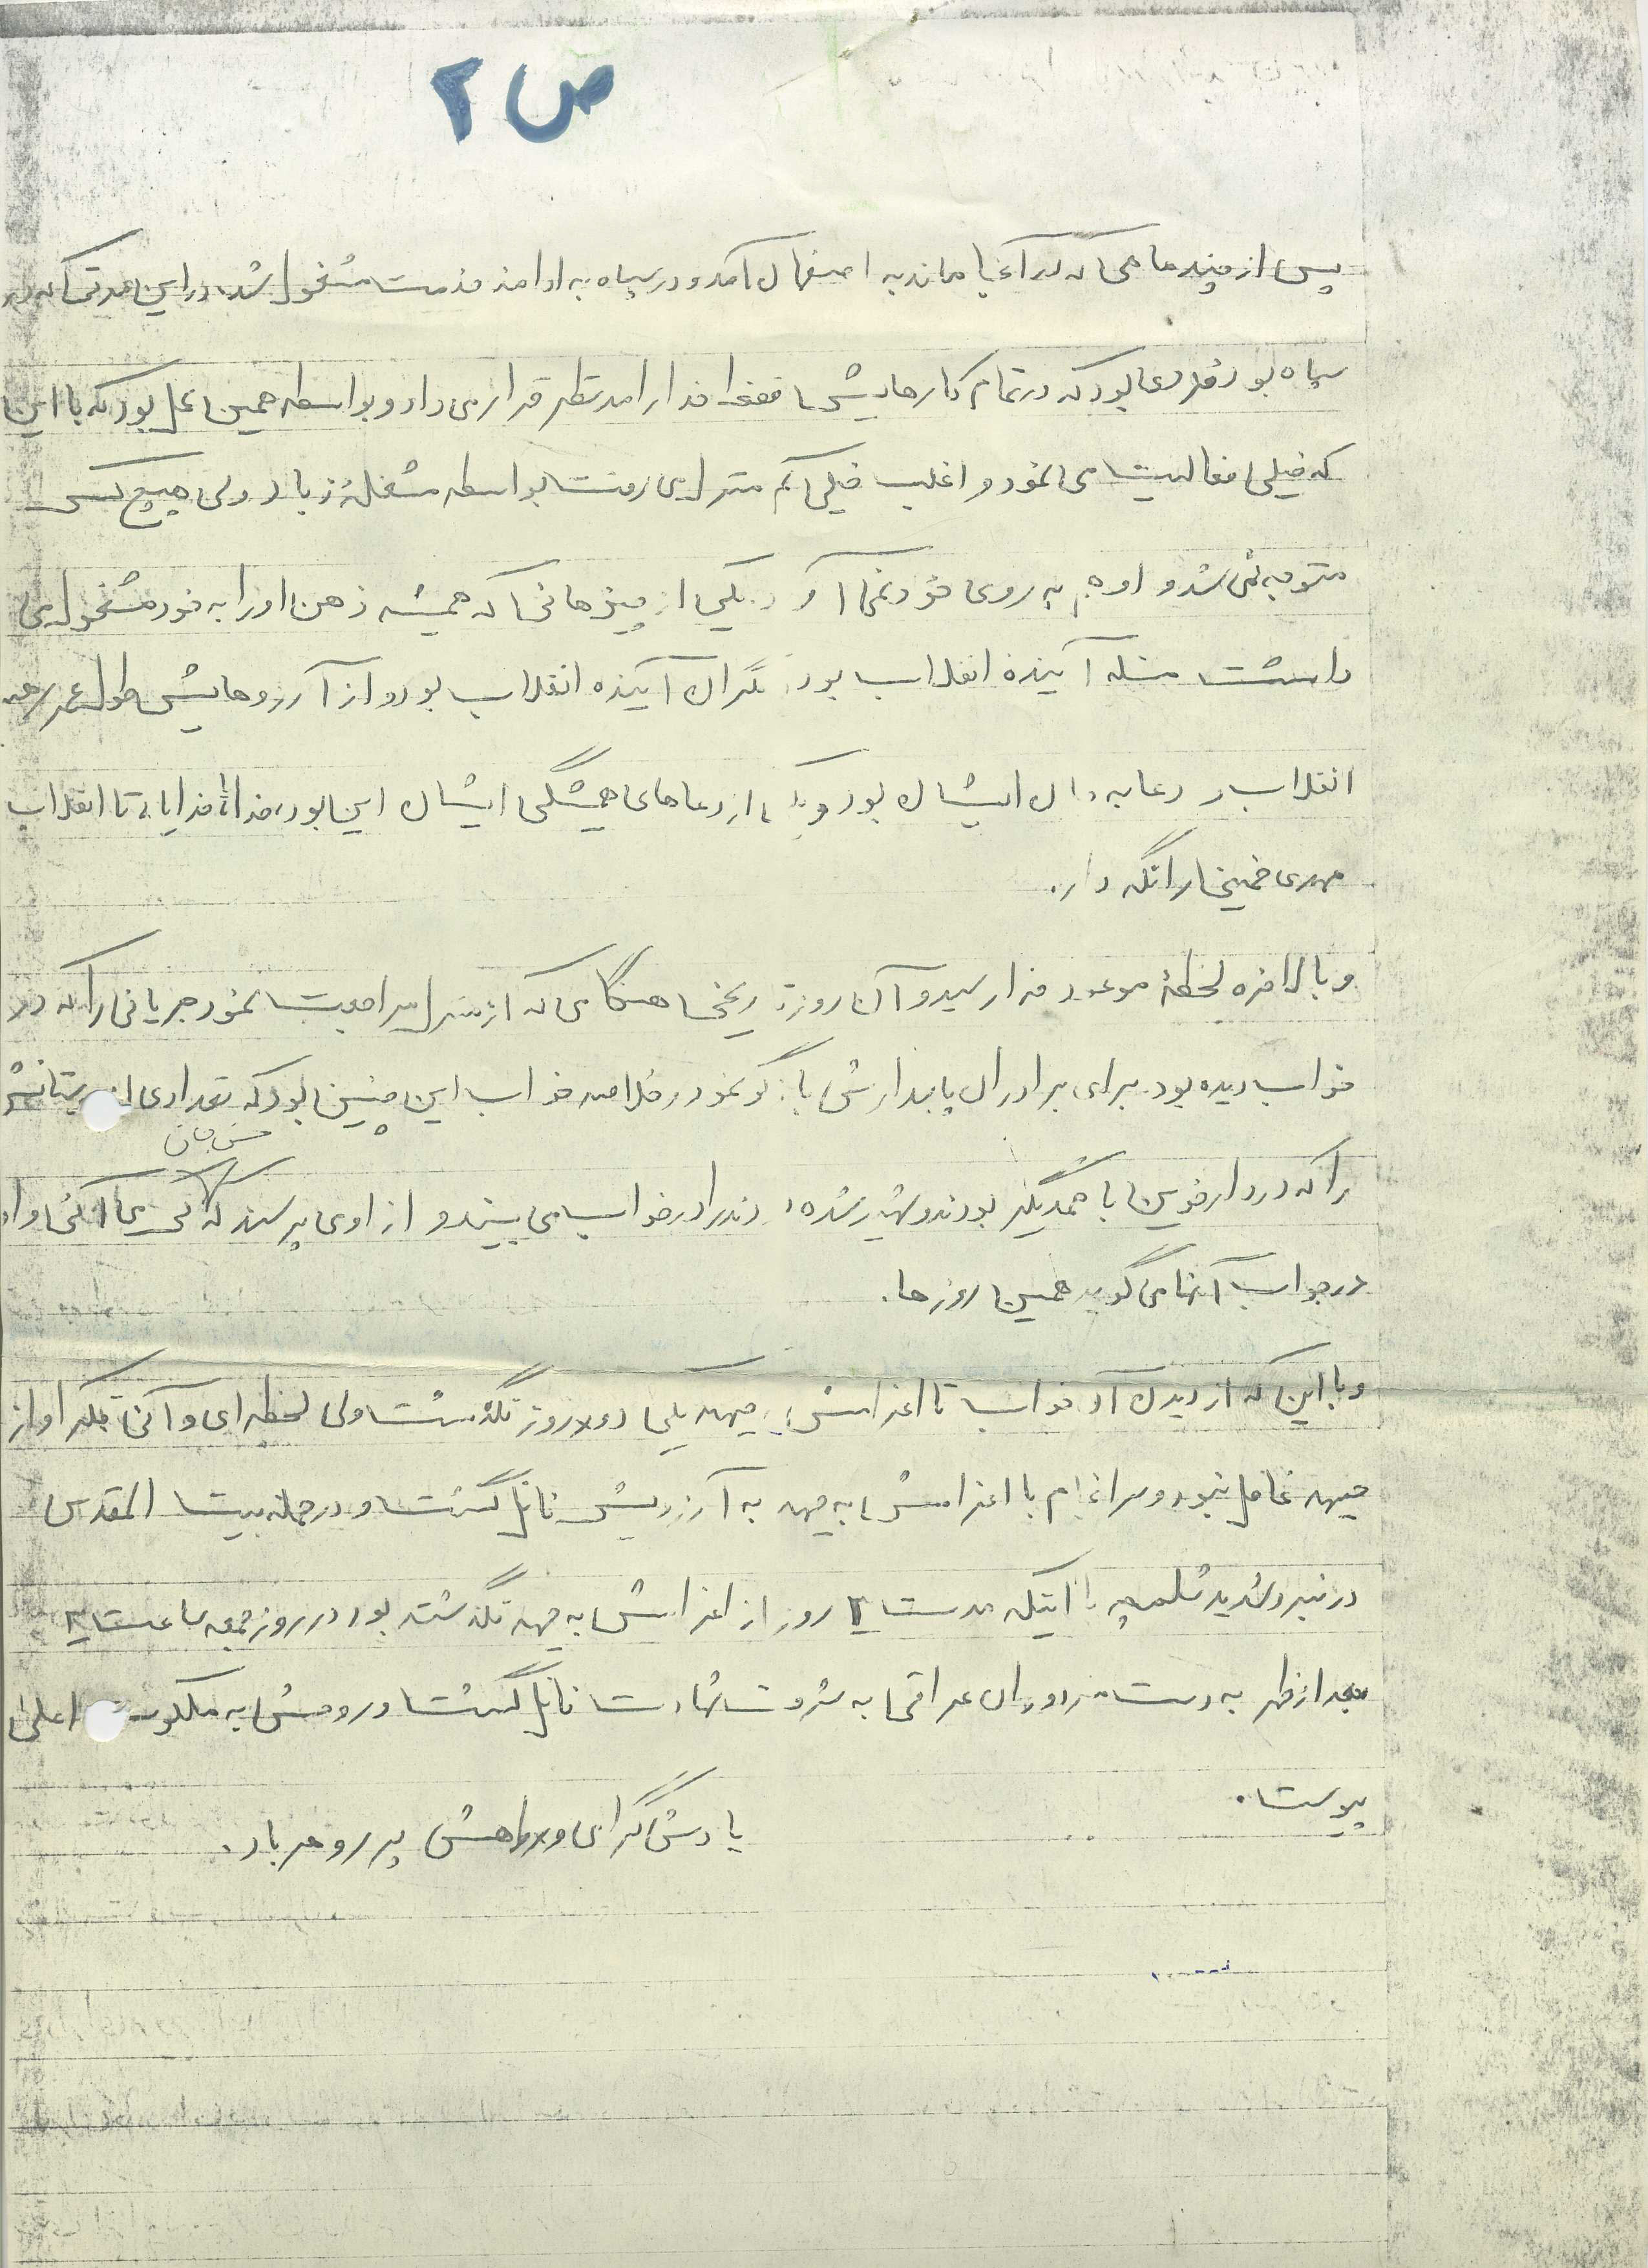 ص ۲
پس از چند ماهی که در آنجا ماند به اصفهان آمد و در سپاه به ادامه خدمت مشغول شد. در این مدتی که در
سپاه بود فردی بود که در تمام کارهایش فقط خدا را مد نظر قرار می داد و بواسطه همین عمل بود که با این
که خیلی فعالیت می نمود و اغلب خیلی کم منزل می رفت بواسطه مشغلهٔ زیاد ولی هیچ کس
متوجه نمی شد و او هم به روی خود نمی آورد یکی از چیزهائی که همیشه ذهن او را به خود مشغول می
داشت مسئله آینده انقلاب بود. نگران آینده انقلاب بود و از آرزوهایش طول عمر رهبر
انقلاب و دعا به جان ایشان بود و یکی از دعاهای همیشگی ایشان این بود، خدایا خدایا، تا انقلاب
مهدی خمینی را نگه دار.
و بالاخره لحظهٔ موعود فرا رسید و آن روز تاریخی هنگامی که از منزل مراجعت نمود جریانی را که در
خواب دیده بود برای برادران پاسدارش بازگو نمود و خلاصه خواب این چنین بود که تعدادی از دوستانش
را که در دارخوین با همدیگر بودند و شهید شده بودند را در خواب می بیند و از او می پرسند که حسن جان کی می آئی و او
در جواب آنها می گوید همین روزها.
و با این که از دیدن آن خواب تا اعزامش به جبهه یکی دو روز نگذشت ولی لحظه ای و آنی فکر او از
جبهه غافل نبود و سرانجام با اعزامش به جبهه به آرزویش نائل گشت و در حمله بیت المقدس
در نبرد شدید شلمچه با اینکه مدت ۲ روز از اعزامش به جبهه نگذشته بود در روز جمعه ساعت ۲
بعد از ظهر به دست مزدوران عراقی به شرف شهادت نائل گشت و روحش به ملکوت اعلی
پیوست.
یادش گرامی و راهش پر رهرو باد.